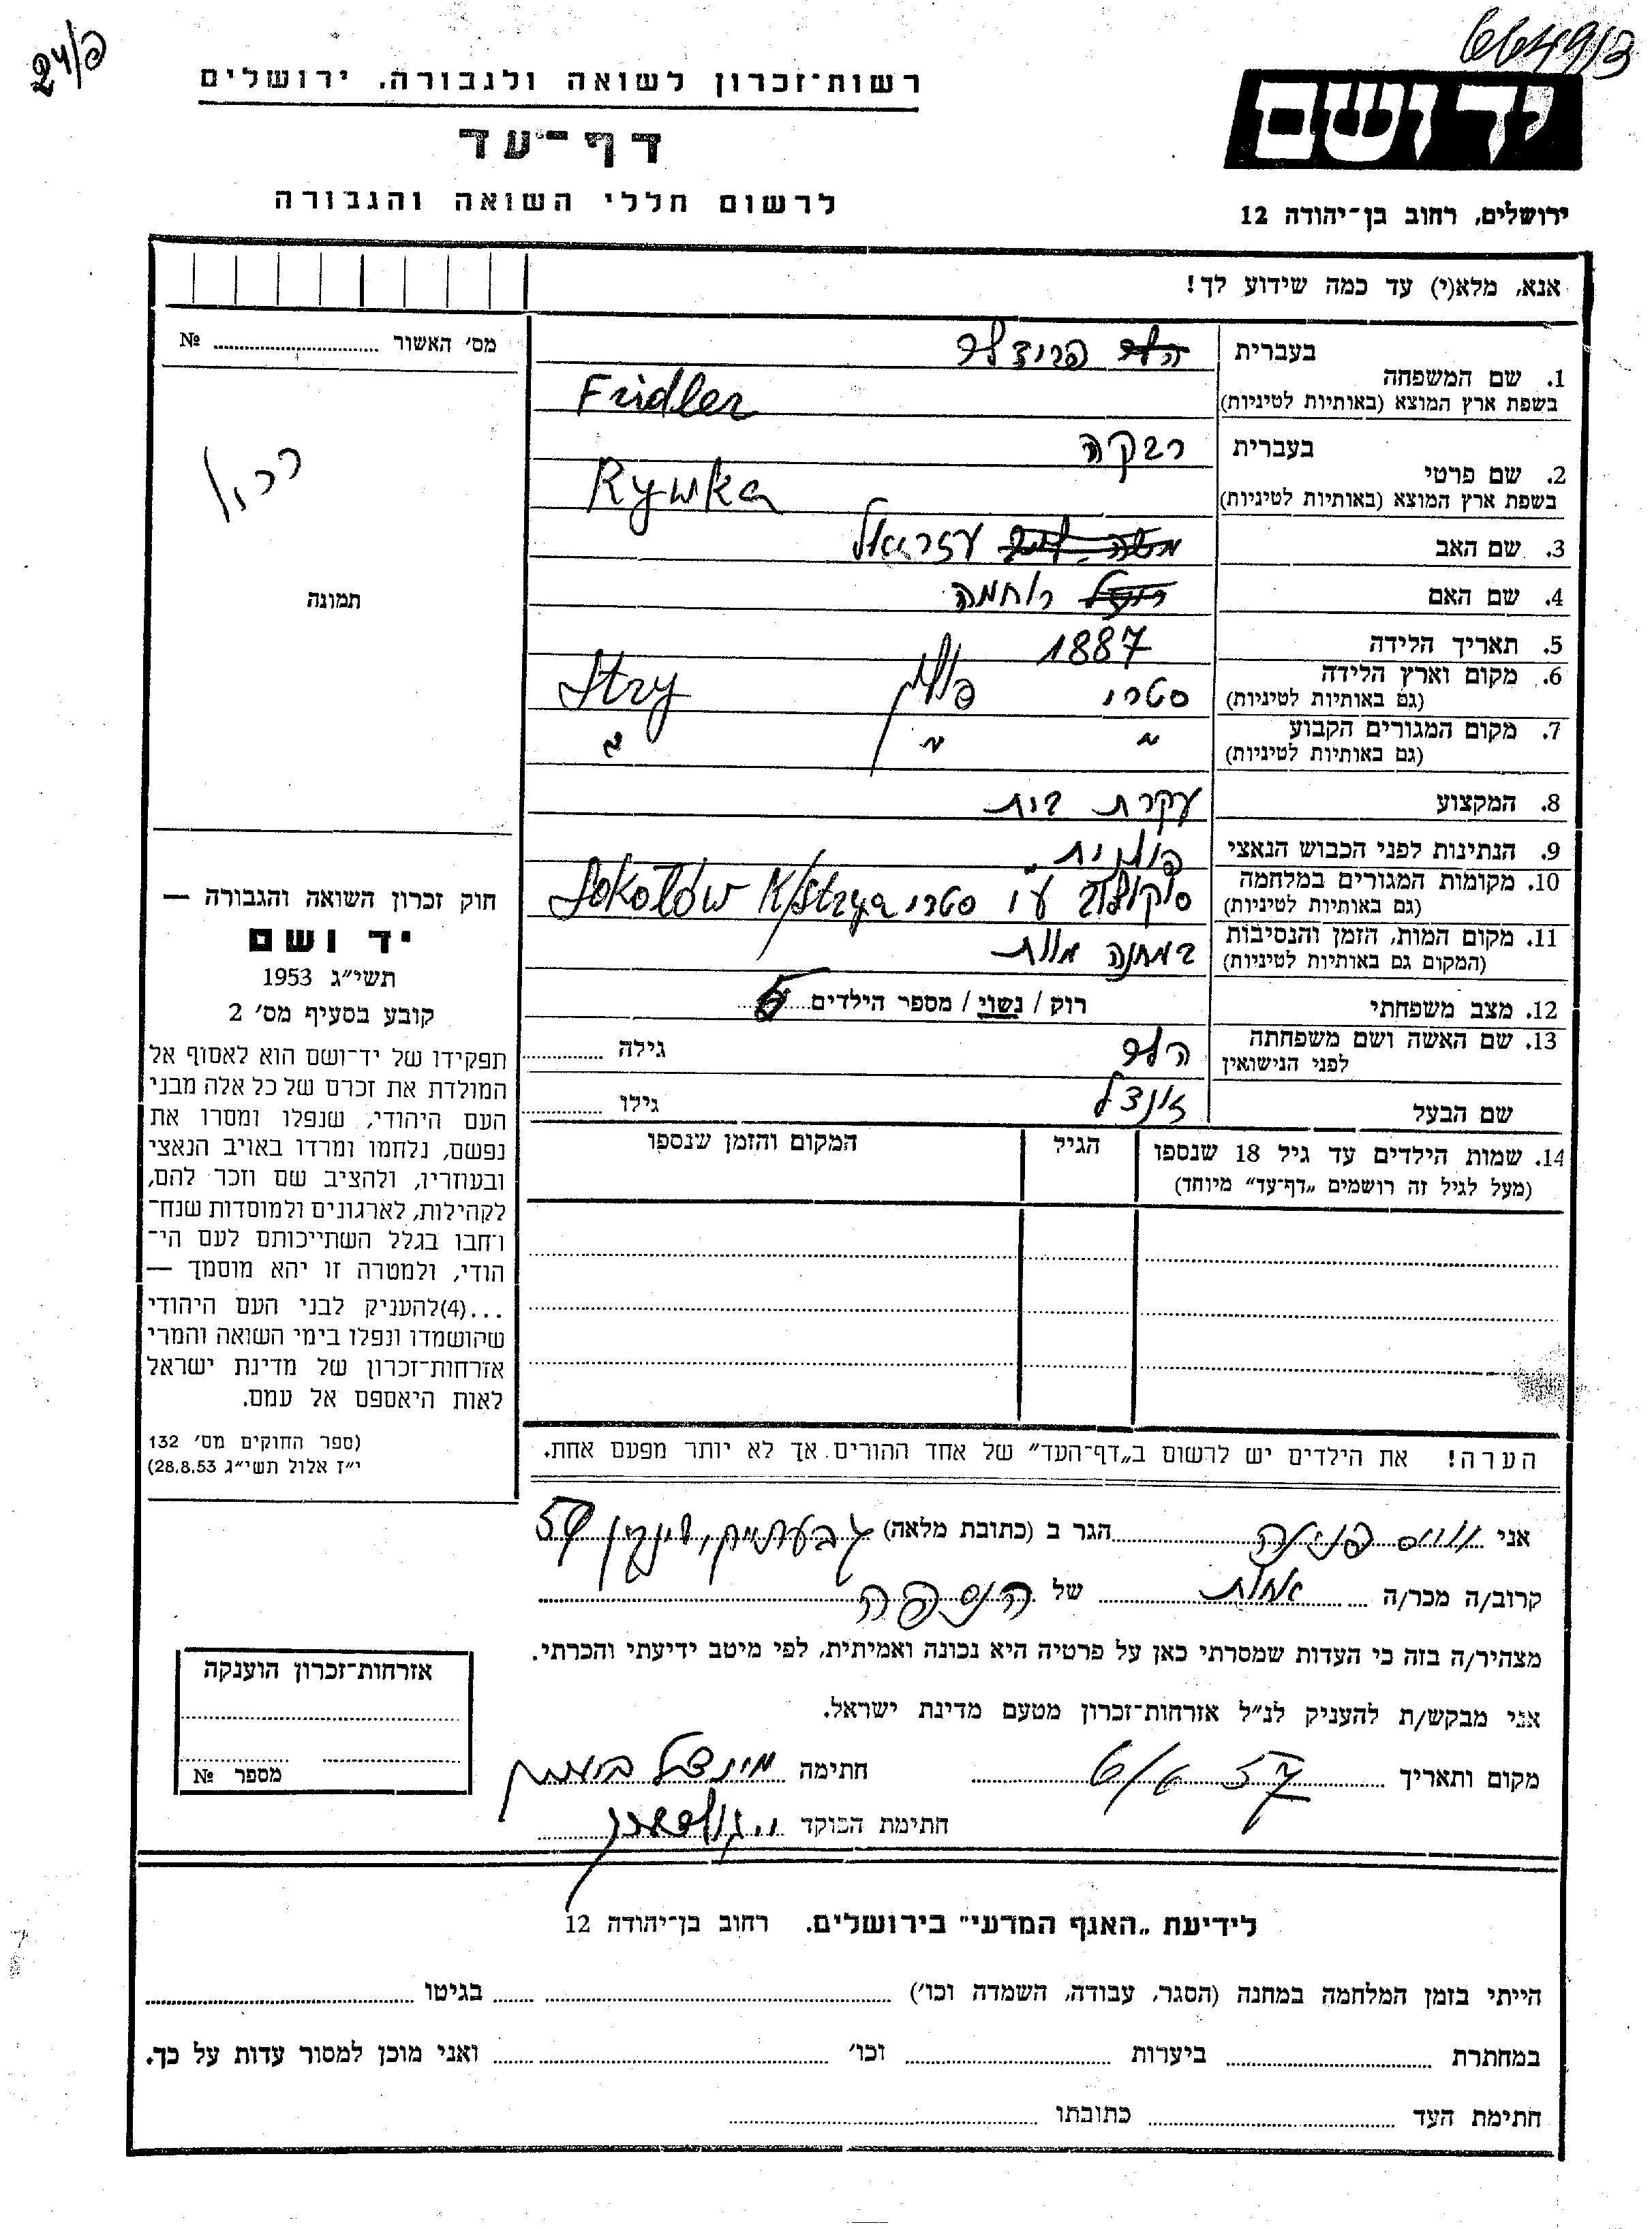 24/פ
6649/3
רשות־זכרון לשואה ולגבורה, ירושלים
דף־עד
לרשום חללי השואה והגבורה
יד ושם
ירושלים, רחוב בן־יהודה 12
אנא, מלא(י) עד כמה שידוע לך!
מס׳ האשור № ........
תמונה
חוק זכרון השואה והגבורה —
יד ושם
תשי״ג 1953
קובע בסעיף מס׳ 2
תפקידו של יד־ושם הוא לאסוף אל
המולדת את זכרם של כל אלה מבני
העם היהודי, שנפלו ומסרו את
נפשם, נלחמו ומרדו באויב הנאצי
ובעוזריו, ולהציב שם וזכר להם,
לקהילות, לארגונים ולמוסדות שנח־
רחבו בגלל השתייכותם לעם הי־
הודי, ולמטרה זו יהא מוסמך —
...(4)להעניק לבני העם היהודי
שהושמדו ונפלו בימי השואה והמרי
אזרחות־זכרון של מדינת ישראל
לאות היאספם אל עמם.
(ספר החוקים מס׳ 132
י״ז אלול תשי״ג 28.8.53)
1. שם המשפחה
בעברית הלר פרידלר
בשפת ארץ המוצא (באותיות לטיניות) Fridler
2. שם פרטי
בעברית רבקה
בשפת ארץ המוצא (באותיות לטיניות) Rywka
3. שם האב עזריאל
4. שם האם רוחמה
5. תאריך הלידה 1887
6. מקום וארץ הלידה
(גם באותיות לטיניות) סטרי פולין Stry
7. מקום המגורים הקבוע
(גם באותיות לטיניות) " " "
8. המקצוע עקרת בית
9. הנתינות לפני הכבוש הנאצי פולנית
10. מקומות המגורים במלחמה
(גם באותיות לטיניות) סוקולוב ע״י סטרי Sokołów K/Stryja
11. מקום המות, הזמן והנסיבות
(המקום גם באותיות לטיניות) במחנה מות
12. מצב משפחתי רוק / נשוי / מספר הילדים 5
13. שם האשה ושם משפחתה
לפני הנישואין הלר גילה ........
שם הבעל זינדל גילו ........
14. שמות הילדים עד גיל 18 שנספו הגיל המקום והזמן שנספו
(מעל לגיל זה רושמים „דף־עד״ מיוחד)
הערה! את הילדים יש לרשום ב„דף־העד״ של אחד ההורים אך לא יותר מפעם אחת.
אני ווייס פנינה הגר ב (כתובת מלאה) גבעתיים, 59
קרוב/ה מכר/ה אחות של הנספה
מצהיר/ה בזה כי העדות שמסרתי כאן על פרטיה היא נכונה ואמיתית, לפי מיטב ידיעתי והכרתי.
אני מבקש/ת להעניק לנ״ל אזרחות־זכרון מטעם מדינת ישראל.
מקום ותאריך חתימה
חתימת הפוקד
אזרחות־זכרון הוענקה
מספר №
לידיעת „האגף המדעי״ בירושלים. רחוב בן־יהודה 12
הייתי בזמן המלחמה במחנה (הסגר, עבודה, השמדה וכו׳) ........ בגיטו ........
במחתרת ........ ביערות ........ וכו׳ ........ ואני מוכן למסור עדות על כך.
חתימת העד ........ כתובתו ........